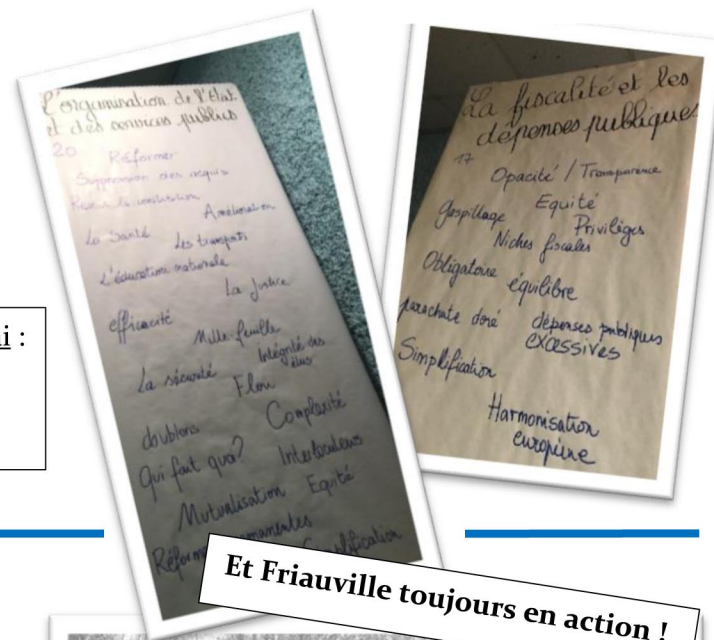 L'organisation de l'Etat
et des services publics
20
Réformer
Suppression des acquis
Revoir la constitution
Amélioration
La Santé
Les transports
L'éducation nationale
La Justice
efficacité
Mille feuille
La sécurité
Intégrité des
élus
Flou
doublons
Complexité
Qui fait quoi?
Interlocuteurs
Mutualisation
Equité
Réformes permanentes
Simplification
La fiscalité et les
dépenses publiques
17
Opacité / Transparence
Equité
Gaspillage
Privilèges
Niches fiscales
Obligatoire
équilibre
parachute doré
dépenses publiques
excessives
Simplification
Harmonisation
européene
i :
Et Friauville toujours en action !